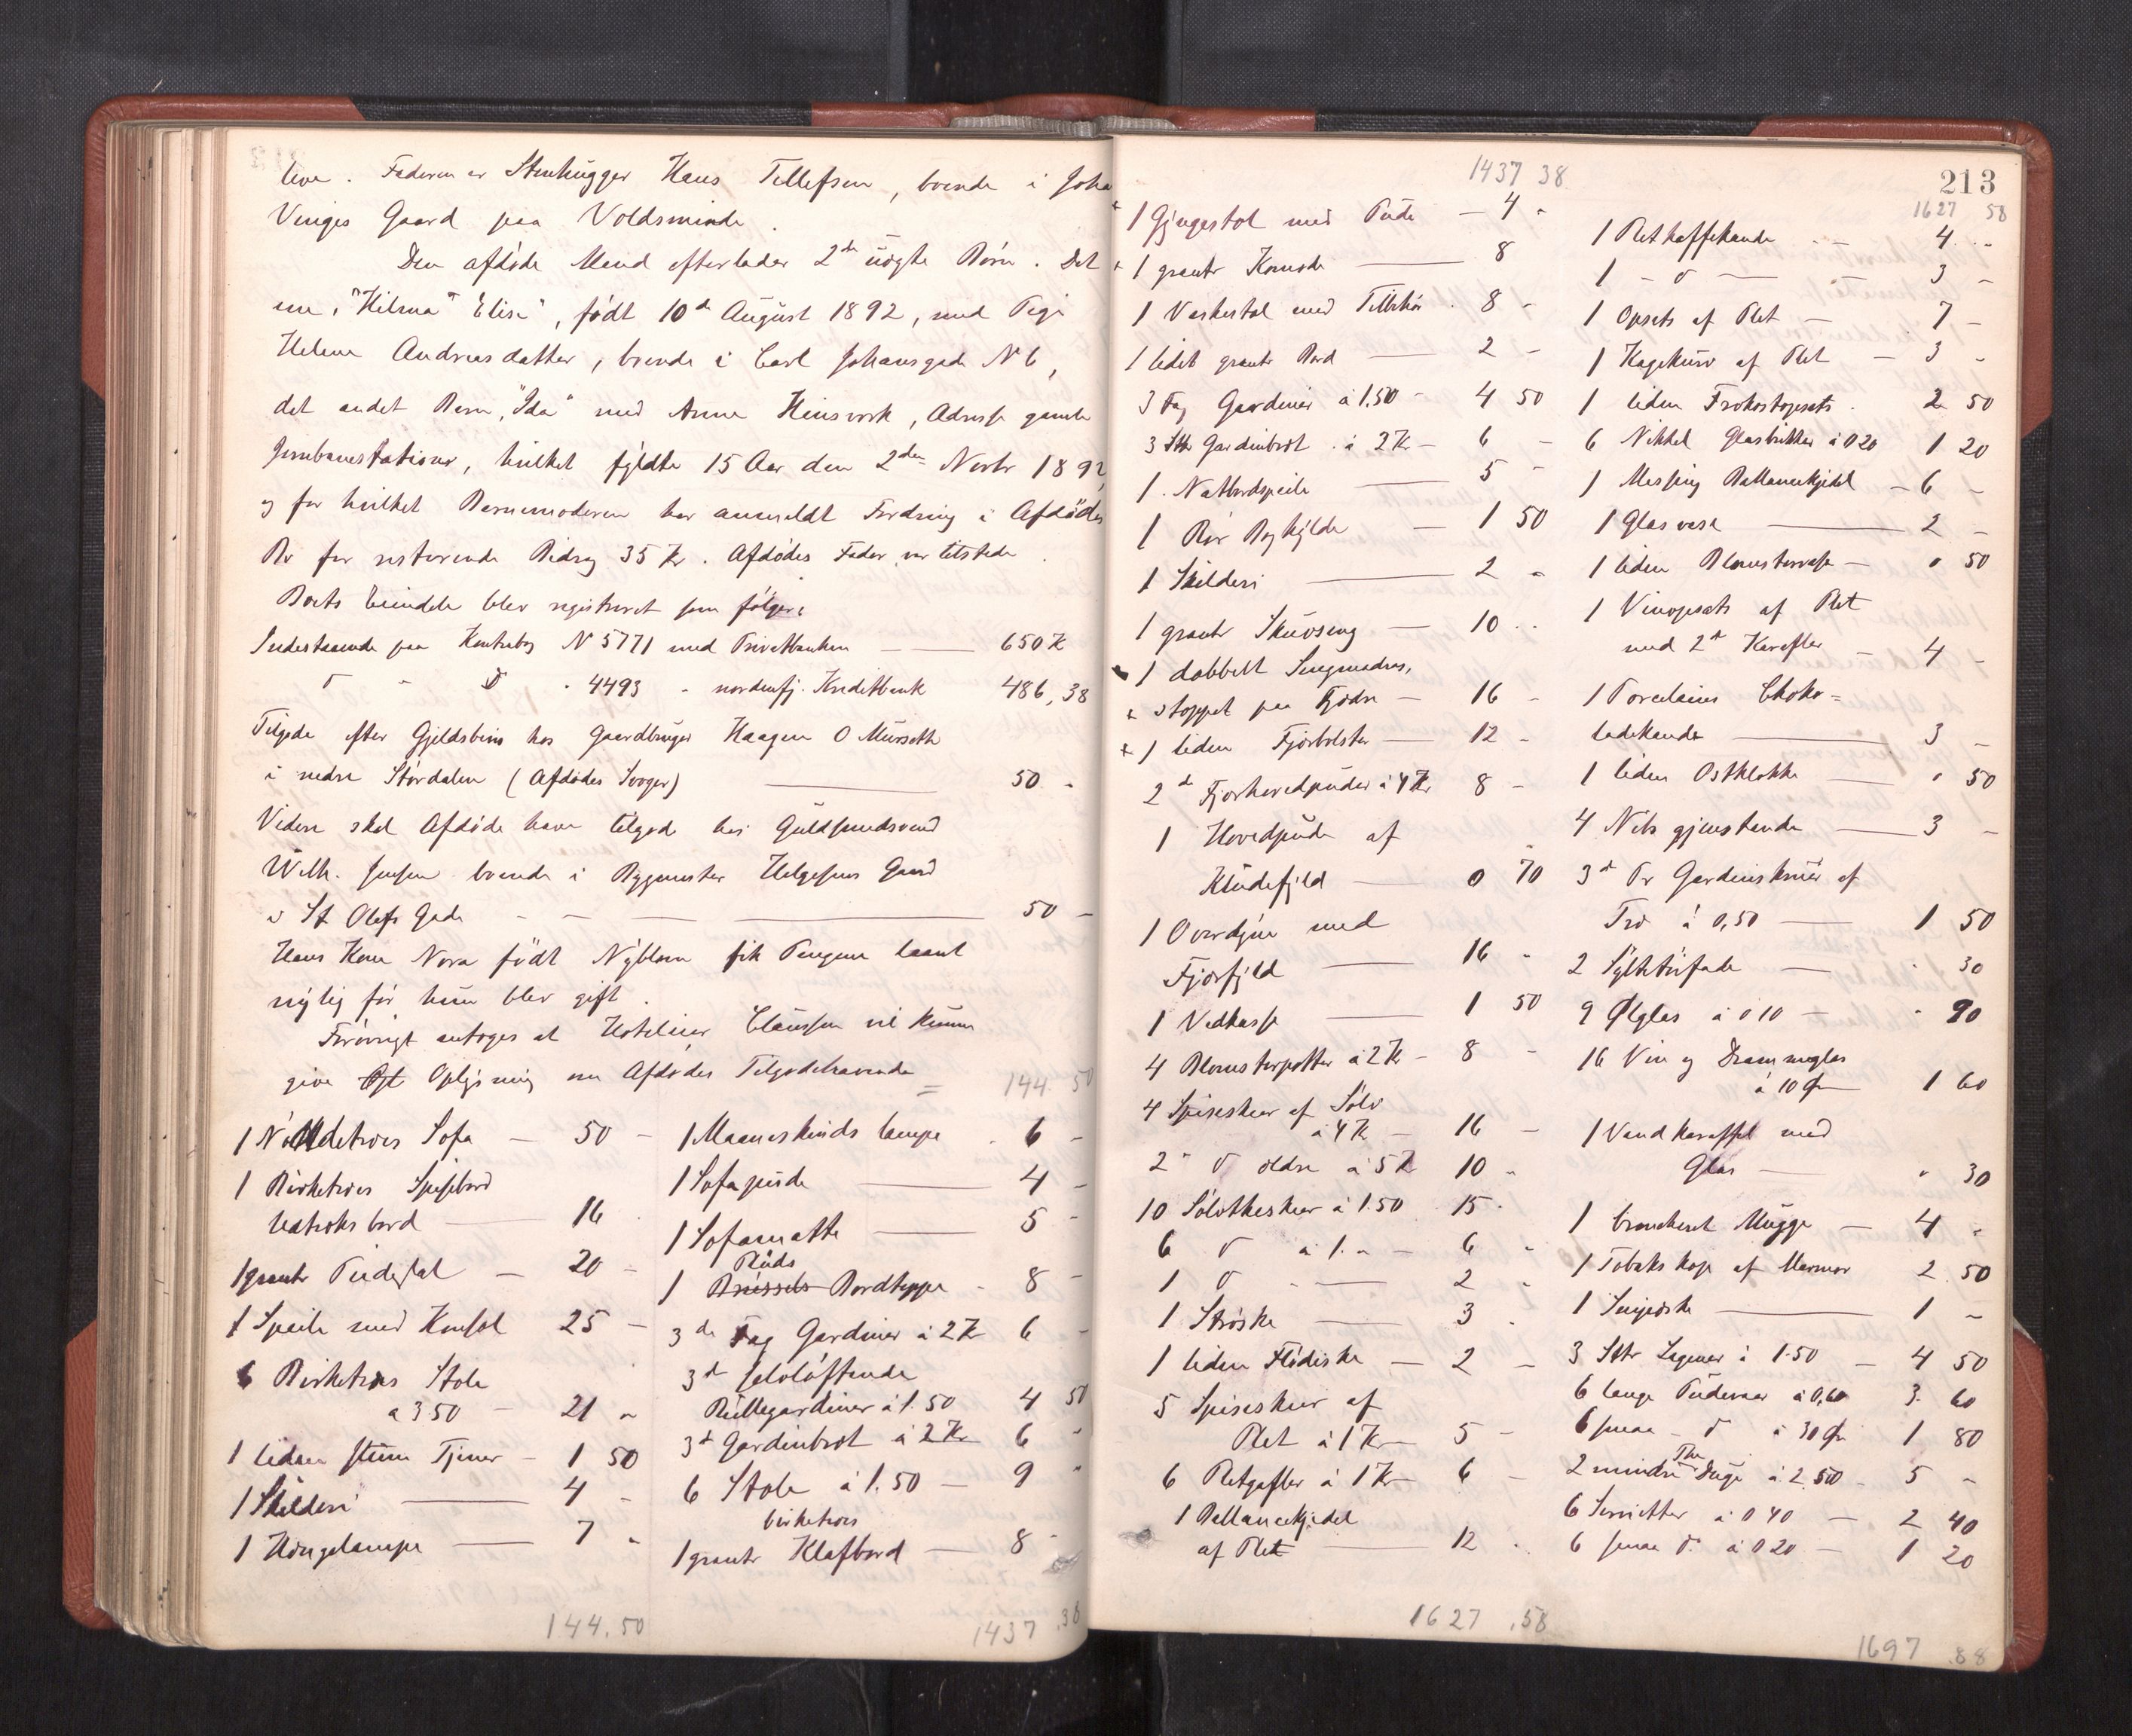 leve. Faderen er Stenhugger Hans Tellefsen, boende i Joha
Vinges Gaard paa Voldsminde.
Den afdøde Mand efterlader 2de uægte Børn. Det
ene, "Hilma Elise", født 10de August 1892, med Pige
Helene Andreasdatter, boende i Carl Johansgade No 6,
det andet Barn, "Ida" med Anne Heinsvork, Adresse gamle
Jernbanestation, hvilket fyldte 15 Aar den 2den Novbr 1892,
og for hvilket Barnemoderen har anmeldt Fordring i Afdødes
Bo for resterende Bidrag 35 Kr. Afdødes Fader var tilstede.
Boets Eiendele blev registreret som følger:
Indestaaende paa Kontrabog N 5771 med Privatbanken — 650 K
d - d - 4493 - nordenfj. Kreditbank 486,38
Tilgode efter Gjeldsbevis hos Gaardbruger Haagen O Murseth
i nedre Størdalen (Afdødes Svoger) — 50 -
Videre skal Afdøde have tilgode hos Guldsmedsvend
Wilh. Jensen boende i Bygmester Helgesens Gaard
i St Olafs Gade — 50 -
Hans Kone Nora født Nyblom fik Pengene laant
nylig før hun blev gift.
Forøvrigt antoges at Hotelier Claussen vil kunne
give Opl Oplysning om Afdødes Tilgodehavende =
144. 50
1 Nøddetræes Sofa — 50 -
1 Birketræes Spisebord
Uatræks bord — 16 -
1 grantr Pidestal — 20 -
1 Speile med Konsol 25 -
6 Birketræes Stole
a 3 50 - 21 -
1 liden stum Tjener - 1 50
1 Skilderi — 4 -
1 Hængelampe — 7 -
144.50
1 Maaneskinds lampe - 6 -
1 Sofapude — 4 -
1 Sofamatte — 5 -
Pluds
1 Brüssels Bordteppe - 8 -
3de Fag Gardiner à 2 Kr 6 -
3de selvløftende
Rullegardiner à 1.50 4 50
3de Gardinbræt à 2 Kr 6 -
6 Stole à 1.50 — 9 -
birketræes
1 grantr Klafbord — 8 -
1437.38
1437 38
1 Gjyngestol med Pude — 4 -
1 grantr Komode — 8
1 Vaskestol med Tilbehør - 8 -
1 lidet grantr Bord — 2 -
3 Fag Gardiner à 1.50 - 4 50
3 Stkr Gardinbræt à 2 Kr — 6 -
1 Natbordspeile — 5 -
1 Rør Boghylde — 1 50
1 Skilderi — 2 -
1 grantr Skuvseng — 10 -
1 dobbelt Sengmadras,
stoppet paa Fjedre — 16 -
1 liden Fjørbolster — 12 -
2de Fjørhovedpuder à 4 Kr 8 -
1 Hovedpude af
Kludefyld — 0 70
1 Overdyne med
Fjørfyld — 16 -
1 Vedkasse — 1 50
4 Blomsterpotter à 2 Kr - 8 -
4 Spiseskeer af Sølv
à 4 K — 16 -
2 - d ældre à 5 K 10 -
10 Sølvtheskeer à 1.50 15 -
6 d à 1.- — 6 -
1 d - — 2 -
1 Strøske — 3 -
1 liden Flødeske — 2 -
5 Spiseskeer af
Plet à 1 Kr — 5 -
6 Pletgafler à 1 Kr — 6 -
1 Ballancekjedel
af Plet — 12 -
1627.58
213
1627 58
1 Pletkaffekande - — 4 -
1 - d — 3 -
1 Opsats af Plet — 7 -
1 Kagekurv af Plet — 3 -
1 liden Frokostopsats - 2 50
6 Nikkel Glasbrikker à 0 20 1 20
1 Messing Ballancekjedel — 6 -
1 Glasvase — 2 -
1 liden Blomstervase — " 50
1 Vinopsats af Plet
med 2de Karafler — 4 -
1 Porcelains Choko=
ladekande — 3 -
1 liden Ostklokke — " 50
4 Nips gjenstande — 3 -
3de Pr Gardinsknær af
Træ à 0,50 — 1 50
2 Syltetøifade — " 30
9 Ølglas à 0 10 — " 90
16 Vin og Drammeglas
à 10 Øre 1 60
1 Vandkaraffel med
Glas — " 30
1 broncheret Mugge — 4 -
1 Tobaks kop af Marmor 2 50
1 Smørske — 1 -
3 Stkr Lagener à 1.50 — 4 50
6 lange Pudevaar à 0,60 3 60
6 smaa - d à 30 Øre 1 80
The
2 mindre Duge à 2 50 - 5 -
6 Servietter à 0 40 — 2 40
6 smaa d. à 0 20 — 1 20
1697.88